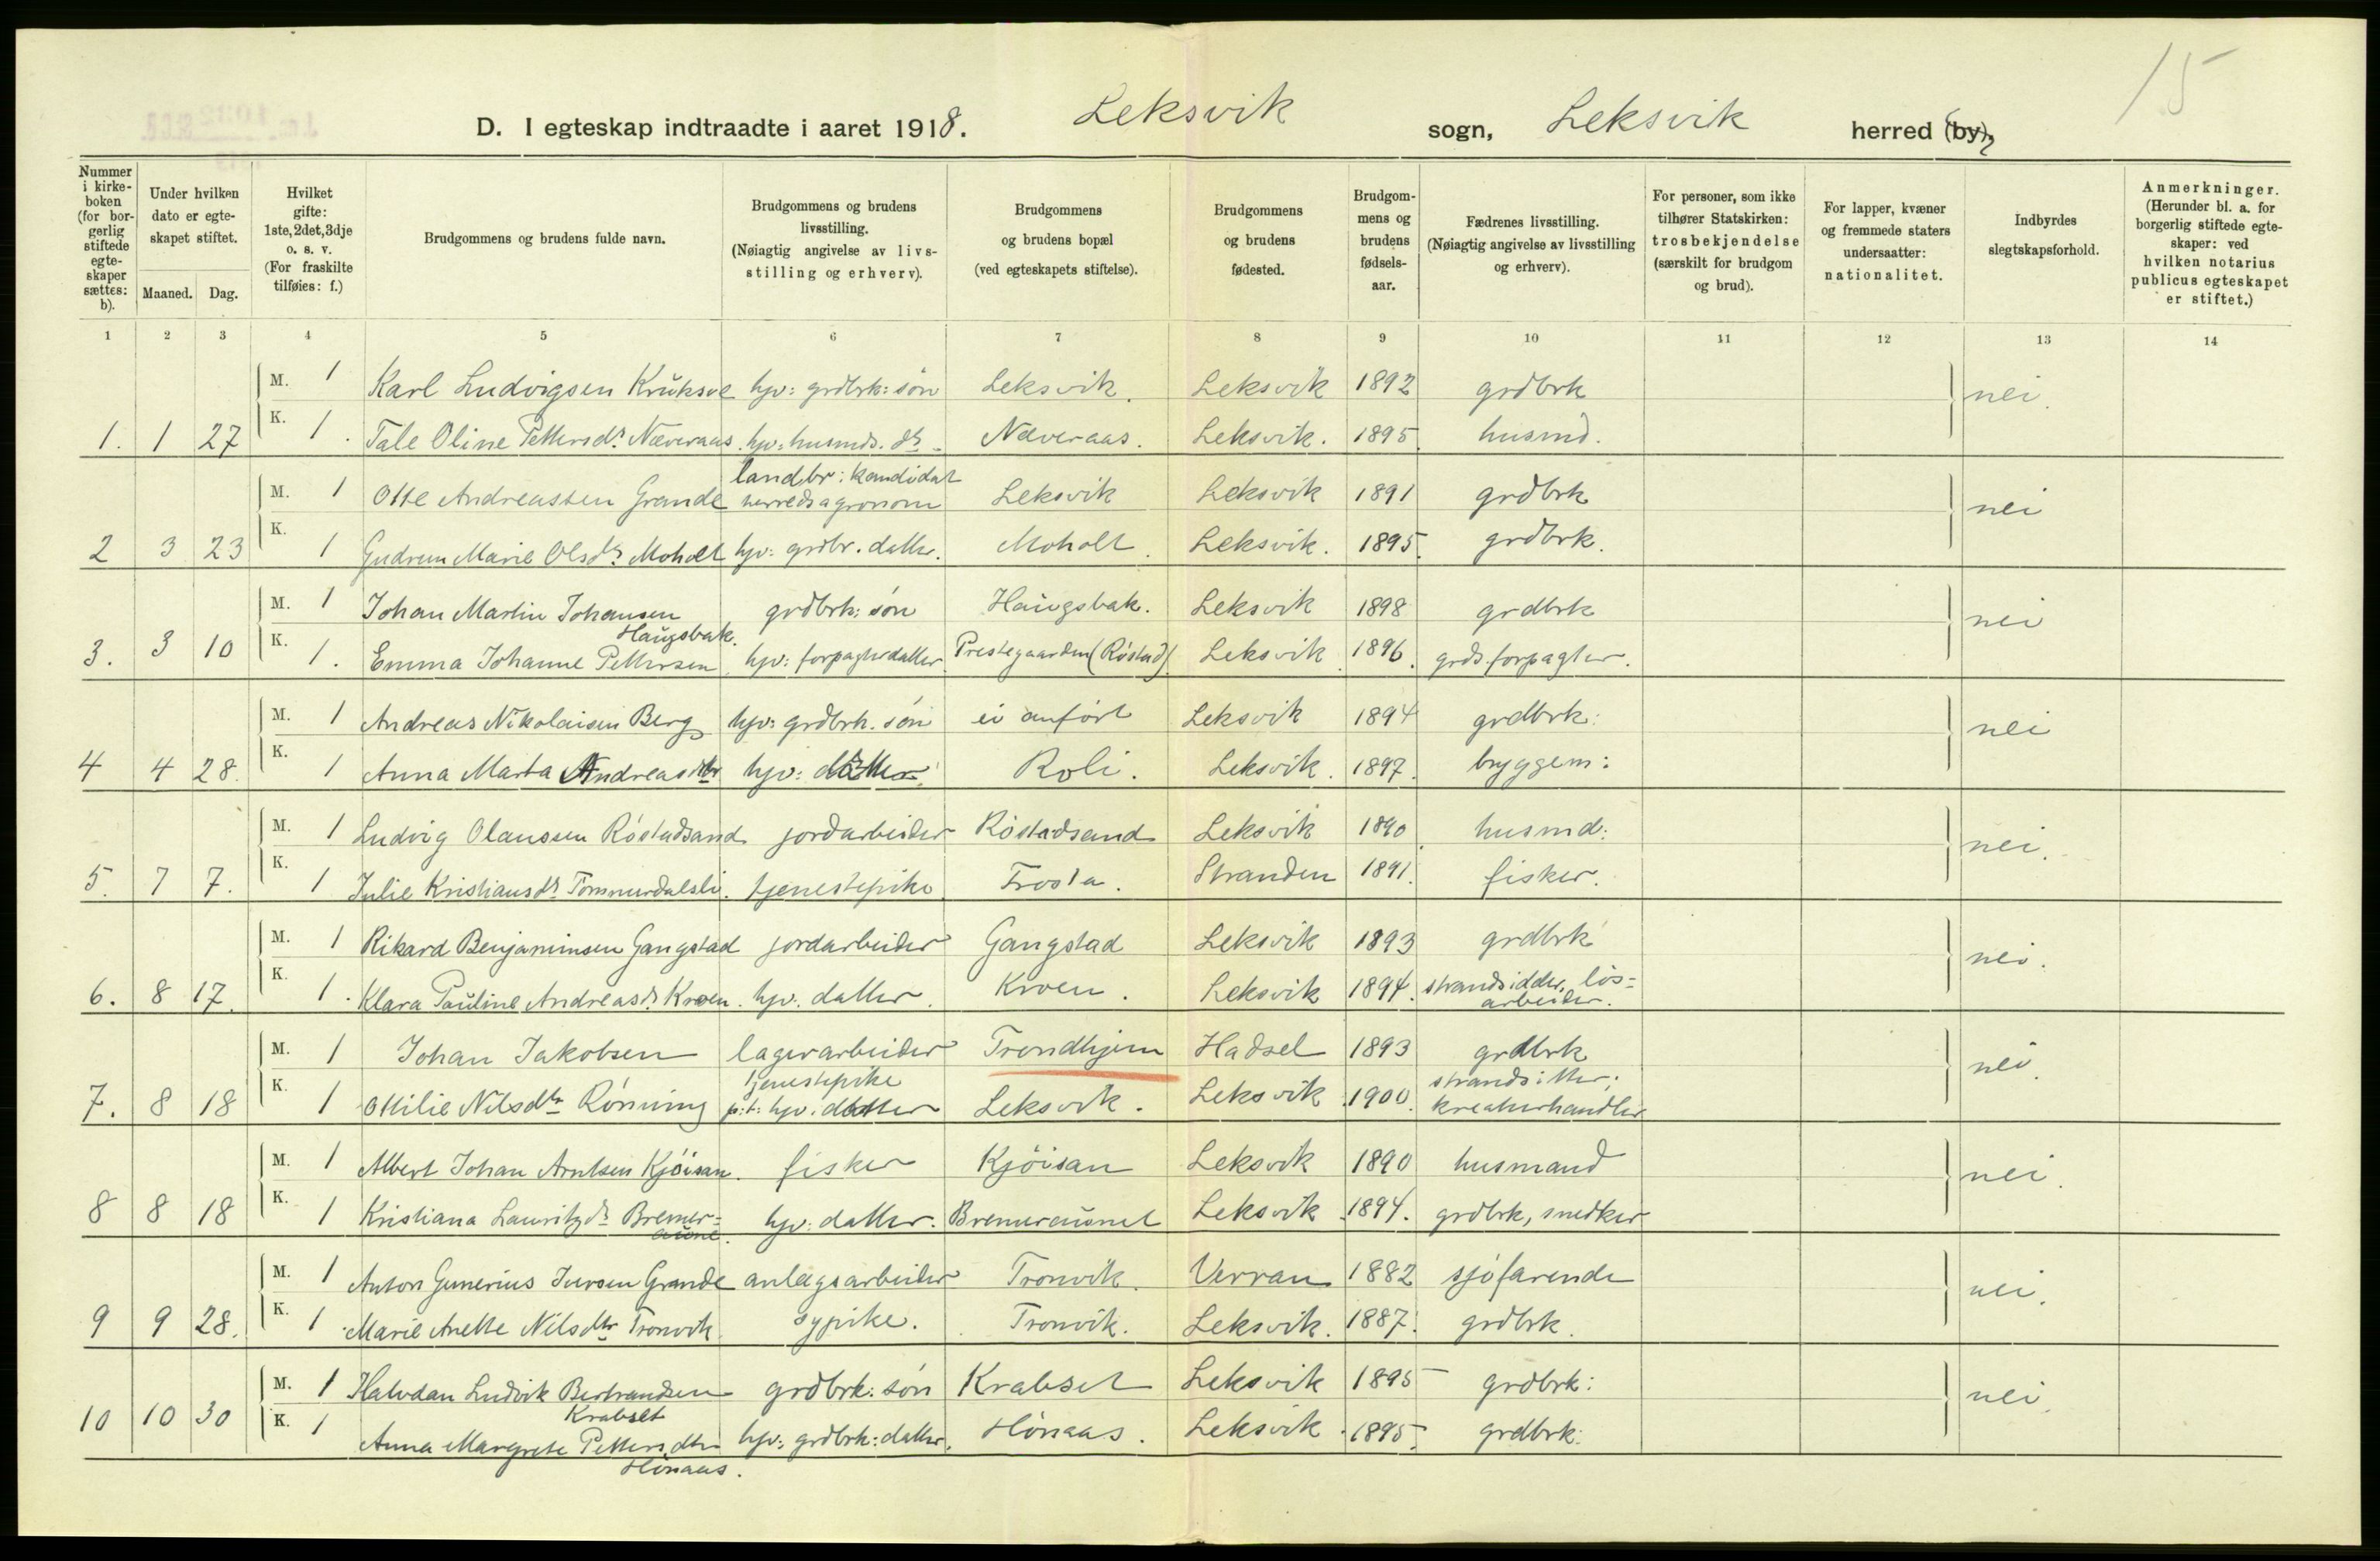 15
D. I egteskap indtraadte i aaret 1918. Leksvik sogn, Leksvik herred (by),
Nummer i kirke-boken (for bor-gerlig stiftede egte-skaper sættes: b).
Under hvilken dato er egte-skapet stiftet.
Maaned. Dag.
Hvilket gifte: 1ste, 2det, 3dje o. s. v. (For fraskilte tilføies: f.)
Brudgommens og brudens fulde navn.
Brudgommens og brudens livsstilling. (Nøiagtig angivelse av livs-stilling og erhverv).
Brudgommens og brudens bopæl (ved egteskapets stiftelse).
Brudgommens og brudens fødested.
Brudgom-mens og brudens fødsels-aar.
Fædrenes livsstilling. (Nøiagtig angivelse av livsstilling og erhverv).
For personer, som ikke tilhører Statskirken: trosbekjendelse (særskilt for brudgom og brud).
For lapper, kvæner og fremmede staters undersaatter: nationalitet.
Indbyrdes slegtskapsforhold.
Anmerkninger. (Herunder bl. a. for borgerlig stiftede egte-skaper: ved hvilken notarius publicus egteskapet er stiftet.)
1 2 3 4 5 6 7 8 9 10 11 12 13 14
M. 1 Karl Ludvigsen Kruksve hjv: grdbrk: søn Leksvik. Leksvik 1892 grdbrk nei.
1. 1 27 K. 1. Tale Oline Pettersdr. Næveraas. hjv: husmds. dr. Næveraas. Leksvik. 1895 husmd.
landbr: kandidat
M. 1 Otte Andreassen Grande herredsagronom Leksvik Leksvik 1891 grdbrk nei
2 3 23 K. 1 Gudrun Marie Olsdr. Moholt hjv: grdbr. datter. Moholt. Leksvik. 1895. grdbrk.
M. 1 Johan Martin Johansen grdbrk: søn Haugsbak. Leksvik 1898 grdbrk nei
Haugsbak.
3. 3 10 K. 1. Emma Johanne Pettersen hjv: forpagterdatter Prestegaarden (Røstad). Leksvik 1896. grds. forpagter.
M. 1 Andreas Nikolaisen Berg hjv: grdbrk. søn ei anført Leksvik 1894 grdbrk: nei
4 4 28. K. 1 Anna Marta Andreasdtr hjv: datter. Roli. Leksvik. 1897. byggem:
M. 1 Ludvig Olaussen Røstadsand jordarbeider Røstadsand Leksvik 1890 husmd: nei.
5. 7 7. K. 1 Julie Kristiansdr. Tømmerdalsli. tjenestepike Frosta. Stranden 1891. fisker.
M. 1 Rikard Benjaminsen Gangstad jordarbeider Gangstad Leksvik 1893 grdbrk nei.
6. 8 17. K. 1. Klara Pauline Andreasdr. Kroen. hjv. datter. Kroen. Leksvik 1894. strandsidder, løs=
arbeider.
M. 1 Johan Jakobsen lagerarbeider Trondhjem Hadsel 1893 grdbrk nei.
tjenestepike strandsitter;
7. 8 18 K. 1 Ottilie Nilsdtr Rønning p:t: hjv. datter Leksvik. Leksvik 1900. kreaturhandler
M. 1 Albert Johan Arntsen Kjøisan. fisker Kjøisan Leksvik 1890 husmand nei.
8 8 18 K. 1 Kristiana Lauritzdr. Bremer= hjv: datter. Bremeraunet Leksvik 1894. grdbrk, snedker
aune.
M. 1 Anton Gunerius Iversen Grande anlægsarbeider Tronvik. Verran 1882 sjøfarende nei.
9 9 28. K. 1 Marie Anette Nilsdtr Tronvik sypike. Tronvik. Leksvik. 1887. grdbrk.
M. 1 Halvdan Ludvik Bertrandsen grdbrk: søn Krabset Leksvik 1895 grdbrk: nei.
Krabset
10 10 30 K. 1 Anna Margrete Pettersdtr hjv: grdbrk: datter. Hønaas. Leksvik. 1895. grdbrk:
Hønaas.